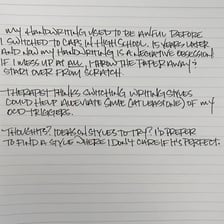 MY HANDWRITING USED TO BE AWFUL BEFORE
I SWITCHED TO CAPS IN HIGH SCHOOL. 15 YEARS LATER
AND NOW MY HANDWRITING IS A NEGATIVE OBSESSION!
IF I MESS UP AT ALL, I THROW THE PAPER AWAY &
START OVER FROM SCRATCH.
THERAPIST THINKS SWITCHING WRITING STYLES
COULD HELP ALLEVIATE SOME (AT LEAST ONE) OF MY
OCD-TRIGGERS.
THOUGHTS? IDEAS ON STYLES TO TRY? I'D PREFER
TO FIND A STYLE WHERE I DON'T CARE IF IT'S PERFECT.